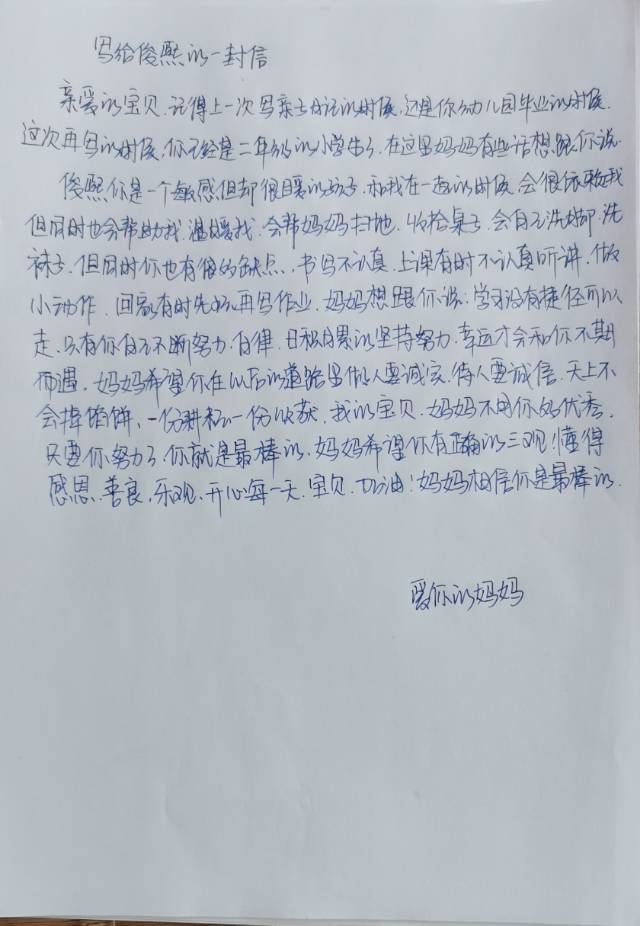 写给俊熙的一封信
亲爱的宝贝.记得上一次写亲子日记的时候,还是你幼儿园毕业的时候.
这次再写的时候,你已经是二年级的小学生了.在这里妈妈有些话想跟你说.
俊熙你是一个敏感但却很暖的孩子.和我在一起的时候.会很依赖我
但同时也会帮助我.温暖我.会帮妈妈扫地.收拾桌子.会自己洗脚.洗
袜子.但同时你也有你的缺点.书写不认真.上课有时不认真听讲.做
小动作.回家有时先玩再写作业.妈妈想跟你说:学习没有捷径可以
走.只有你自己不断努力.自律.日积月累的坚持努力.幸运才会和你不期
而遇.妈妈希望你在以后的道路里做人要诚实.待人要诚信.天上不
会掉馅饼.一份耕耘一份收获.我的宝贝.妈妈不用你多优秀.
只要你努力了.你就是最棒的.妈妈希望你有正确的三观!懂得
感恩.善良.乐观.开心每一天.宝贝.加油!妈妈相信你是最棒的.
爱你的妈妈